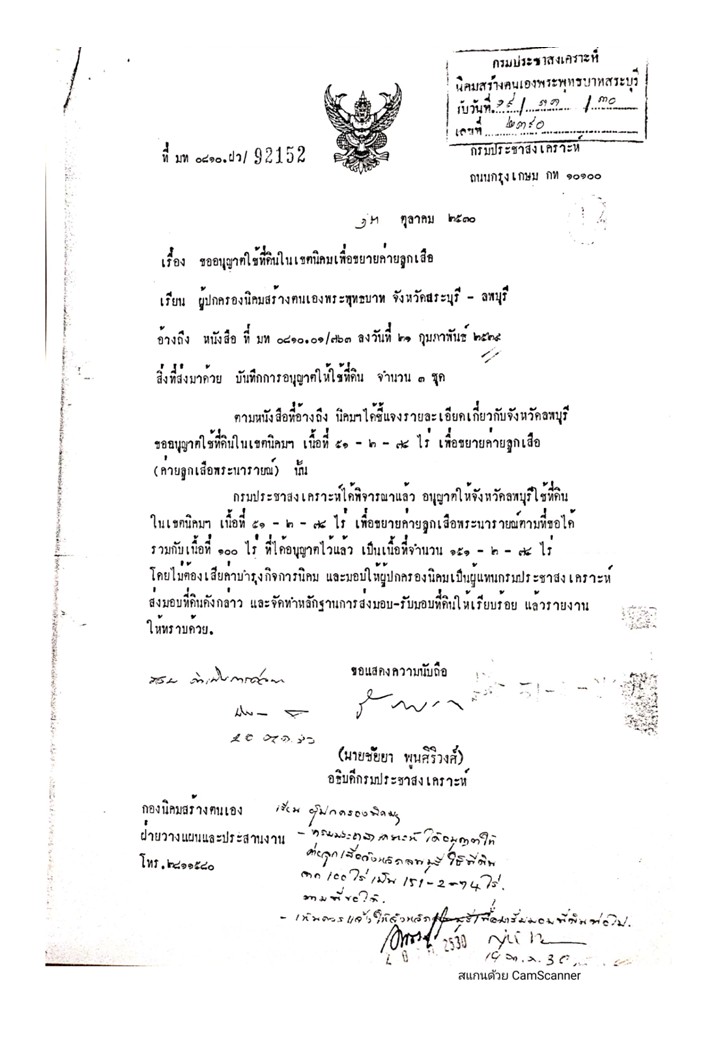 กรมประชาสงเคราะห์
นิคมสร้างตนเองพระพุทธบาทสระบุรี
รับวันที่ ๑๙/ ๑๑ /๓๐
เลขที่ ๒๓๙๐
ที่ มท ๐๘๑๐.ฝว/ 92152
กรมประชาสงเคราะห์
ถนนกรุงเกษม กท ๑๐๑๐๐
ตุลาคม ๒๕๓๐
เรื่อง ขออนุญาตใช้ที่ดินในเขตนิคมเพื่อขยายค่ายลูกเสือ
เรียน ผู้ปกครองนิคมสร้างตนเองพระพุทธบาท จังหวัดสระบุรี - ลพบุรี
อ้างถึง หนังสือ ที่ มท ๐๘๑๐.๐๑/๗๖๓ ลงวันที่ ๒๑ กุมภาพันธ์ ๒๕๒๙
สิ่งที่ส่งมาด้วย บันทึกการอนุญาตให้ใช้ที่ดิน จำนวน ๓ ชุด
ตามหนังสือที่อ้างถึง นิคมฯได้ชี้แจงรายละเอียดเกี่ยวกับจังหวัดลพบุรี
ขออนุญาตใช้ที่ดินในเขตนิคมฯ เนื้อที่ ๕๑ - ๒ - ๗๔ ไร่ เพื่อขยายค่ายลูกเสือ
(ค่ายลูกเสือพระนารายณ์) นั้น
กรมประชาสงเคราะห์ได้พิจารณาแล้ว อนุญาตให้จังหวัดลพบุรีใช้ที่ดิน
ในเขตนิคมฯ เนื้อที่ ๕๑ - ๒ - ๗๔ ไร่ เพื่อขยายค่ายลูกเสือพระนารายณ์ตามที่ขอได้
รวมกับเนื้อที่ ๑๐๐ ไร่ ที่ได้อนุญาตไว้แล้ว เป็นเนื้อที่จำนวน ๑๕๑ - ๒ - ๗๔ ไร่
โดยไม่ต้องเสียค่าบำรุงกิจการนิคม และมอบให้ผู้ปกครองนิคมเป็นผู้แทนกรมประชาสงเคราะห์
ส่งมอบที่ดินดังกล่าว และจัดทำหลักฐานการส่งมอบ-รับมอบที่ดินให้เรียบร้อย แล้วรายงาน
ให้ทราบด้วย.
ขอแสดงความนับถือ
(นายชัยยา พูนศิริวงศ์)
อธิบดีกรมประชาสงเคราะห์
กองนิคมสร้างตนเอง
ฝ่ายวางแผนและประสานงาน
โทร.๒๘๑๑๕๔๐
เรียน ผู้ปกครองนิคมฯ
- กรมประชาสงเคราะห์ ได้อนุญาตให้
ค่ายลูกเสือจังหวัดลพบุรี ใช้ที่ดิน
จาก 100 ไร่ เป็น 151-2-74 ไร่.
ตามที่ขอได้.
2530
สแกนด้วย CamScanner